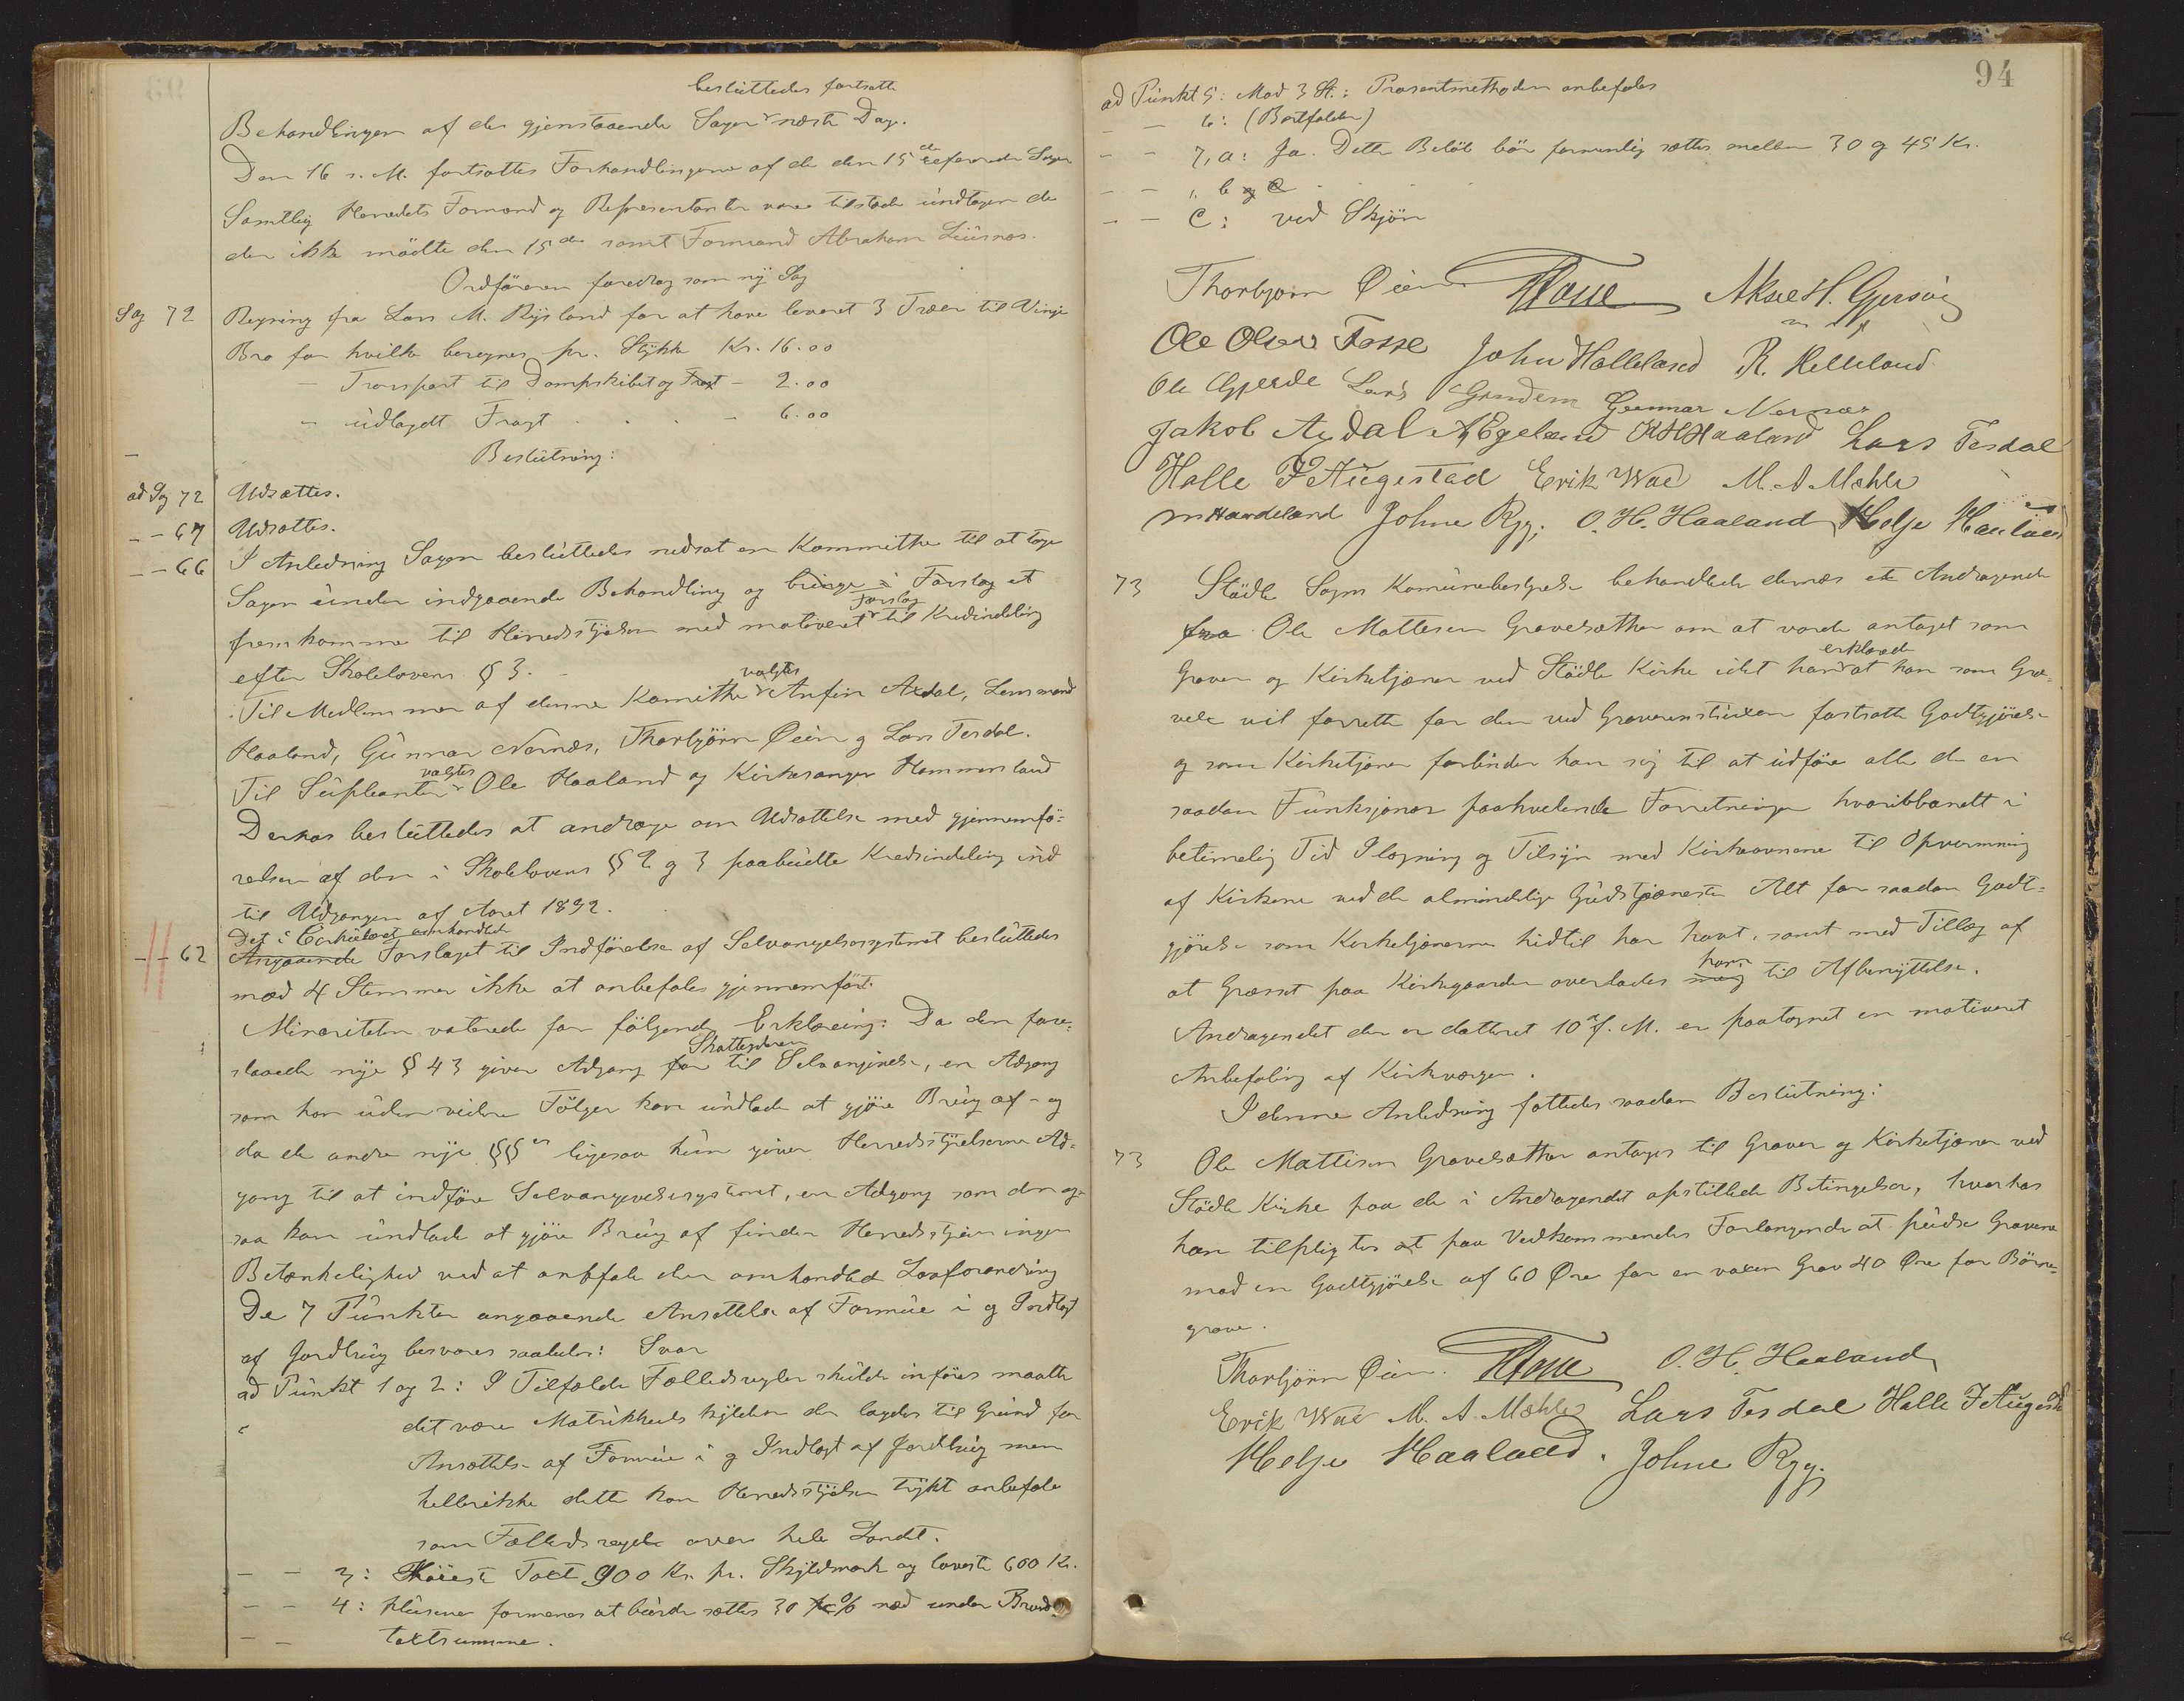 besluttedes fortsatte
Behandlingen af de gjenstaaende Sager næste Dag.
Den 16 s. M. fortsattes Forhandlingerne af de den 15de refererede Sager
Samtlig Herredets Formænd og Repræsentanter vare tilstede undtagen de
der ikke mødte den 15de samt Formand Abraham
Ordføreren foredrog som ny Sag
Sag 72 Regning fra Lars M. Rysland for at have leveret 3 Træer til Vinje
Bro for hvilke beregnes pr. Stykke Kr. 16.00
– Transport til Dampskibet og Fragt – 2.00
– udlagdt Fragt . . . – 6.00
Beslutning:
ad Sag 72 Udsættes.
– – 67 Udsættes.
– – 66 I Anledning Sagen besluttedes nedsat en Kommithe til at tage
Sagen under indgaaende Behandling og bringe i Forslag et
fremkomme til Herredsstyrelsen med motiveret Forslag til Kredsinddeling
efter Skolelovens § 3.
Til Medlemmer af denne Komithe valgtes Anfin Axdal, Lensmand
Haaland, Gunnar Nernæs, Thorbjørn Øien og Lars Tesdal.
Til Supleanter valgtes Ole Haaland og Kirkesanger Hammersland
Derhos besluttedes at andrage om Udsættelse med gjennemfø=
relsen af den i Skolelovens §§ 2 og 3 paabudte Kredsinddeling ind
til Udgangen af Aaret 1892.
Det i Cirkulæret omhandlede
– – 62 Angaaende Forslaget til Indførelse af Selvangivelsessystemet besluttedes
mod 4 Stemmer ikke at anbefales gjennemført.
Minoriteten voterede for følgende Erklæring: Da den fore=
slaaede nye § 43 giver Adgang for Skatteyderen til Selvangivelse, en Adgang
som han uden videre Følger kan undlade at gjøre Brug af – og
da de andre nye §§er ligesaa kun giver Herredsstyrelserne Ad=
gang til at indføre Selvangivelsessystemet, en Adgang som den og
saa kan undlade at gjøre Brug af finder Herredsstyrelsen ingen
Betænkelighed ved at anbefale den omhandled Lovforandring
De 7 Punkter angaaende Ansættelse af Formue i og Indtægt
af Jordbrug besvares saaledes: Svar
ad Punkt 1 og 2: I Tilfælde Fællesregler skulde indføres maatte
det være Matrikkelskylden der lagdes til Grund for
Ansættelse af Formue i og Indtægt af Jordbrug men
hellerikke dette kan Herredsstyrelsen trygt anbefale
som Fællesregel over hele Landet.
– – 3: Høieste Takt 900 Kr. pr. Skyldmark og laveste 600 Kr.
– – 4: Husene formenes at burde sættes 30 % ned under Brand
– – taktsumme.
94
ad Punkt 5: Mod 3 St.: Prosentmethoden anbefales
– – 6: (Bortfalder)
– – 7, a: Ja. Dette Beløb bør formentlig sættes mellem 30 og 45 Kr.
– – „ b og c
– – C: ved Skjøn
Thorbjørn Øien. Aksel H. Gjersvig
Ole Olsen Fosse John Halleland R. Helleland
Ole Gjerde Lars Grindem Gunnar Nernæs
Jakob Axdal A Egeland K H Haaland Lars Tesdal
Halle J Augestad Erik Wae M. A Mæhle
M Handeland Johne Ryg. O. H. Haaland Helje Haaland
73 Stødle Sogns Komunebestyrelse behandlede dernæs et Andragende
fra Ole Mattesen Gravelsæther om at vorde antaget som
Graver og Kirketjener ved Stødle Kirke idet han erklærede at han som Gra=
ver vil forrette for den ved Graverinstruxen fortsatte Godtgjørelse
og som Kirketjener forbinder han sig til at udføre alle de en
saadan Funksjonær paahvelende Forretninger hvoriblandt i
betimelig Tid Ilægning og Tilsyn med Kirkeovnene til Opvarmning
af Kirkene ved de almindelige Gudstjenester Alt for saadan Godt=
gjørelse som Kirketjenerne hidtil har havt, samt med Tillæg af
at Græsset paa Kirkegaarden overlades meg ham til Afbenyttelse.
Andragendet der er datteret 10de f. M. er paategnet en motiveret
Anbefaling af Kirkevergen.
I denne Anledning fattedes saadan Beslutning:
73 Ole Mattisen Gravelsæther antages til Graver og Kirketjener ved
Stødle Kirke paa de i Andragendet opstillede Betingelser, hvorhos
han tilpligtes at paa Vedkommendes Forlangende at pudse Gravene
mod en Godtgjørelse af 60 Øre for en voxen Grav 40 Øre for Børne=
grave.
Thorbjørn Øien. O. H. Haaland
Erik Wae M. A. Mæhle Lars Tesdal Halle J Augestad
Helje Haaland. Johne Ryg.